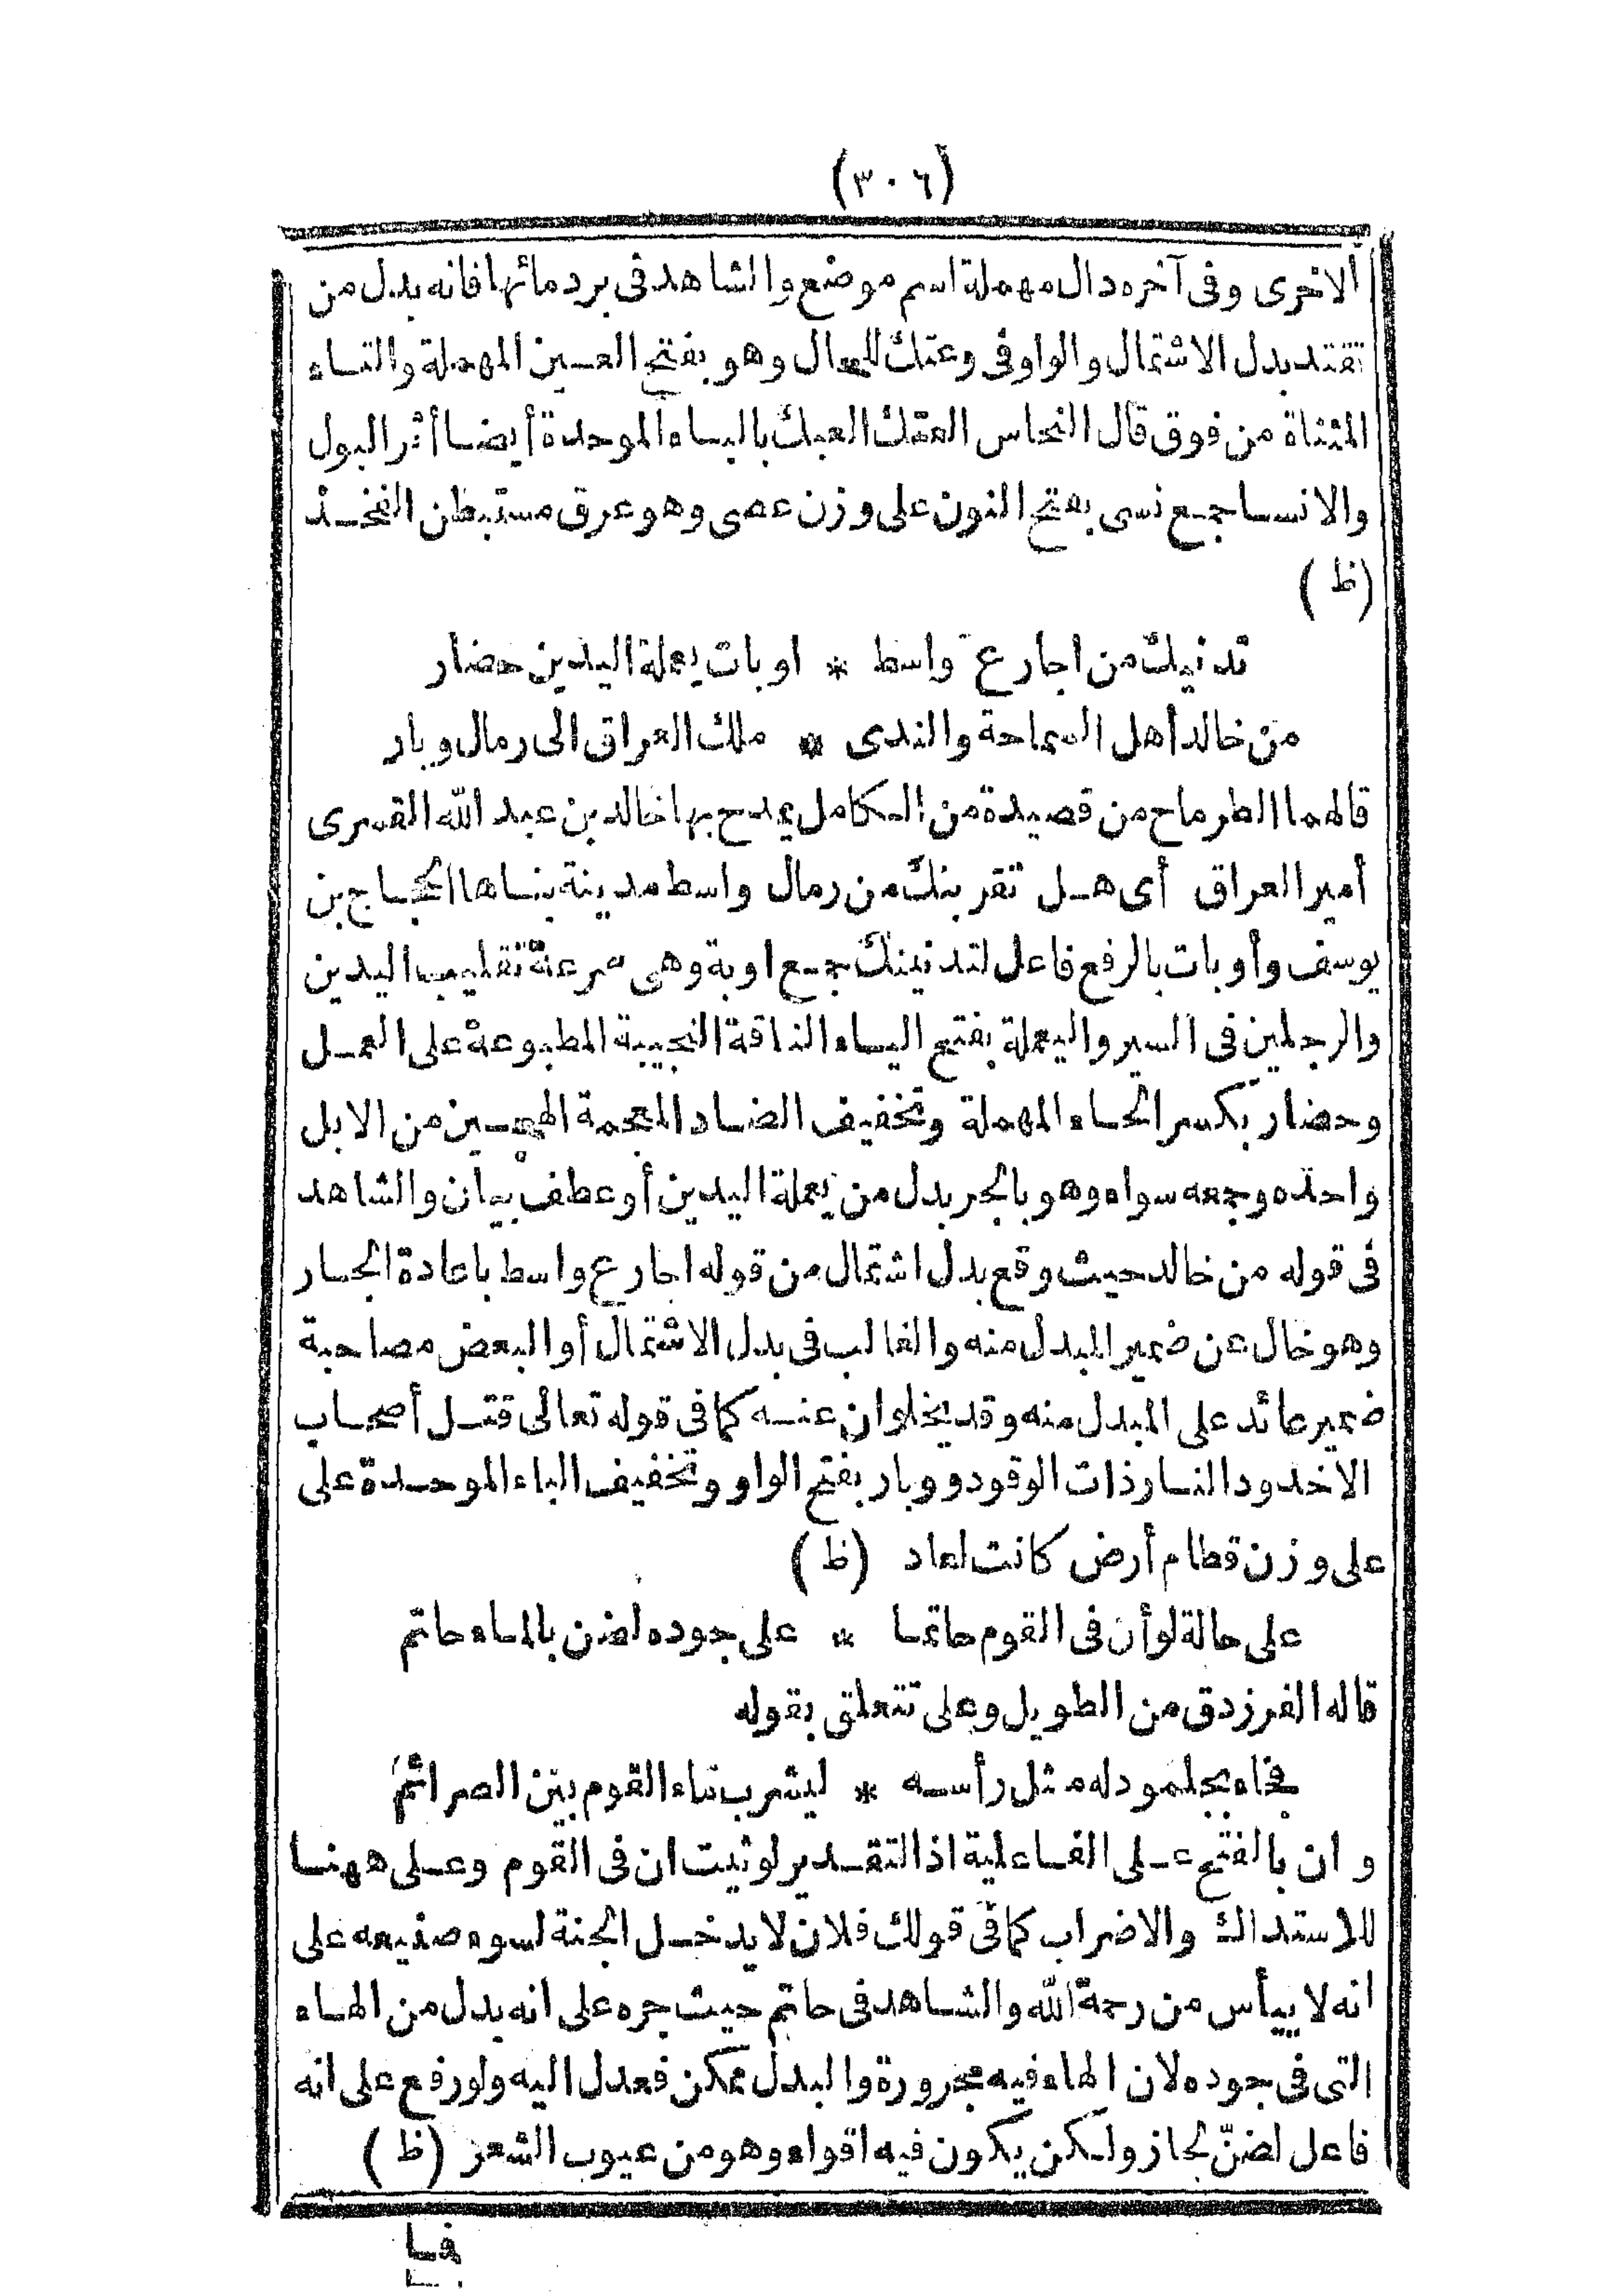 (٣٠٦)
الاخرى وفى آخره دال مهملة اسم موضع والشاهد فى بردمائها فانه بدل من
تقتد بدل الاشتمال والواو فى وعتك للحال وهو بفتح العين المهملة والتاء
المثناة من فوق قال النحاس العتك العبك بالباء الموحدة أيضا أثر البول
والانسا جمع نسى بفتح النون على وزن عصى وهو عرق مستبطن الفخذ
(ظ)
تدنيك من اجارع واسط * اوبات يعملة اليدين حضار
من خالد أهل السماحة والندى * ملك العراق الى رمال وبار
قالهما الطرماح من قصيدة من الكامل يمدح بها خالد بن عبد الله القسرى
أمير العراق أى هل تقربنك من رمال واسط مدينة بناها الحجاج بن
يوسف وأوبات بالرفع فاعل لتدنينك جمع اوبة وهى سرعة تقليب اليدين
والرجلين فى السير واليعملة بفتح الياء الناقة النجيبة المطبوعة على العمل
وحضار بكسر الحاء المهملة وتخفيف الضاد المعجمة الهجين من الابل
واحده وجمعه سواء وهو بالجر بدل من يعملة اليدين أو عطف بيان والشاهد
فى قوله من خالد حيث وقع بدل اشتمال من قوله اجارع واسط باعادة الجار
وهو خال عن ضمير المبدل منه والغالب فى بدل الاشتمال أو البعض مصاحبة
ضمير عائد على المبدل منه وقد يخلوان عنه كما فى قوله تعالى قتل أصحاب
الاخدود النار ذات الوقود ووبار بفتح الواو وتخفيف الباء الموحدة على
على وزن قطام أرض كانت لعاد (ظ)
على حالة لو أن فى القوم حاتما * على جوده لضن بالماء حاتم
قاله الفرزدق من الطويل وعلى تتعلق بقوله
فجاء بجلمود له مثل رأسه * ليشرب ماء القوم بين الصرائم
وان بالفتح على الفاعلية اذ التقدير لو ثبت ان فى القوم وعلى ههنا
للاستدراك والاضراب كما فى قولك فلان لا يدخل الجنة لسوء صنيعه على
انه لا ييأس من رحمة الله والشاهد فى حاتم حيث جره على انه بدل من الهاء
التى فى جوده لان الهاء فيه مجرورة والبدل ممكن فعدل اليه ولو رفع على انه
فاعل لضنّ لجاز ولكن يكون فيه اقواء وهو من عيوب الشعر (ظ)